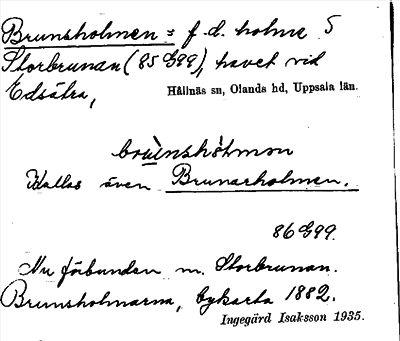 Brunsholmen = f.d. holme S
Storbrunan (85 G99), havet vid
Edsätra, Hållnäs sn, Olands hd, Uppsala län.
brùnshòlmɷn
Kallas även Brunarholmen.
86 G99.
Nu förbunden m. Storbrunan.
Brunsholmarna, bykarta 1882.
Ingegärd Isaksson 1935.